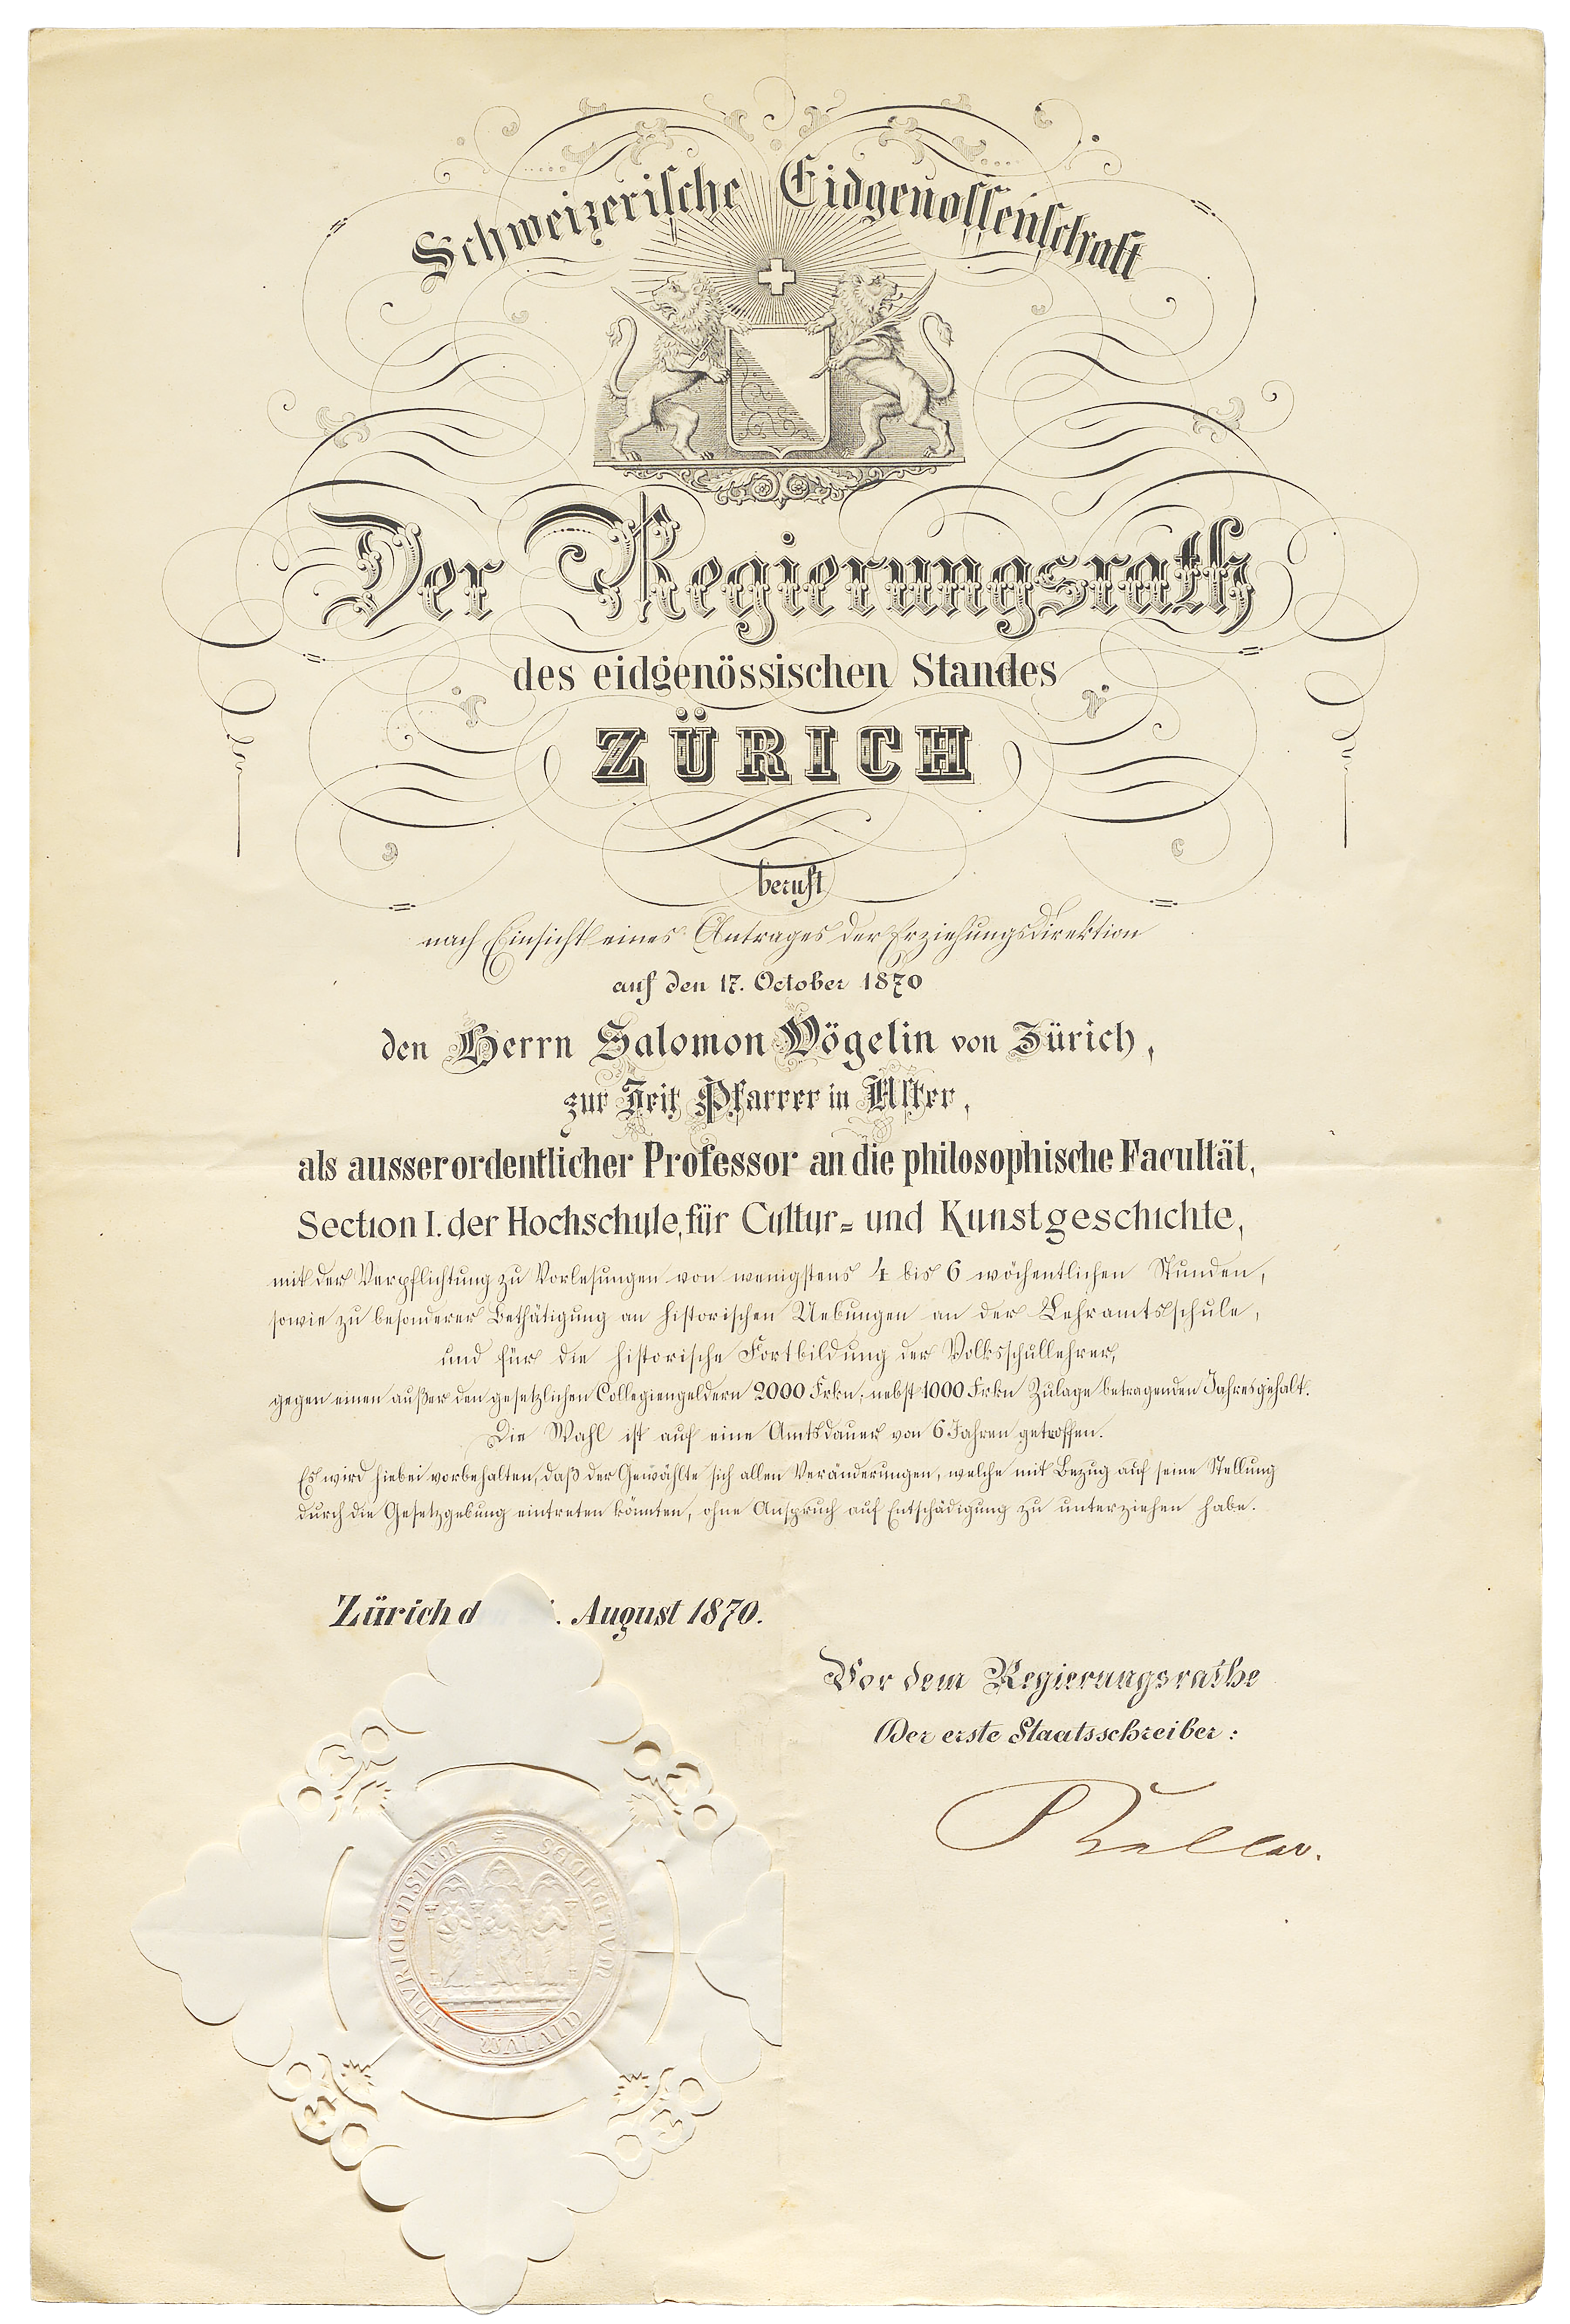 Schweizerische Eidgenossenschaft
Der Regierungsrath
des eidgenössischen Standes
ZÜRICH
beruft
nach Einsicht eines Antrages der Erziehungsdirektion
auf den 17. October 1870
den Herrn Salomon Vögelin von Zürich,
zur Zeit Pfarrer in Uster,
als ausserordentlicher Professor an die philosophische Facultät,
Section I. der Hochschule, für Cultur- und Kunstgeschichte,
mit der Verpflichtung zu Vorlesungen von wenigstens 4 bis 6 wöchentlichen Stunden,
sowie zu besonderer Bethätigung an historischen Uebungen an der Lehramtsschule,
und für die historische Fortbildung der Volksschullehrer,
gegen einen außer den gesetzlichen Collegiengeldern 2000 Frkn, nebst 1000 Frkn Zulage betragenden Jahresgehalt.
Die Wahl ist auf eine Amtsdauer von 6 Jahren getroffen.
Es wird hiebei vorbehalten, daß der Gewählte sich allen Veränderungen, welche mit Bezug auf seine Stellung
durch die Gesetzgebung eintreten könnten, ohne Anspruch auf Entschädigung zu unterziehen habe.
Zürich d . August 1870.
Vor dem Regierungsrathe
Der erste Staatsschreiber:
SECRETVM CIVIVM THVRICENSIVM